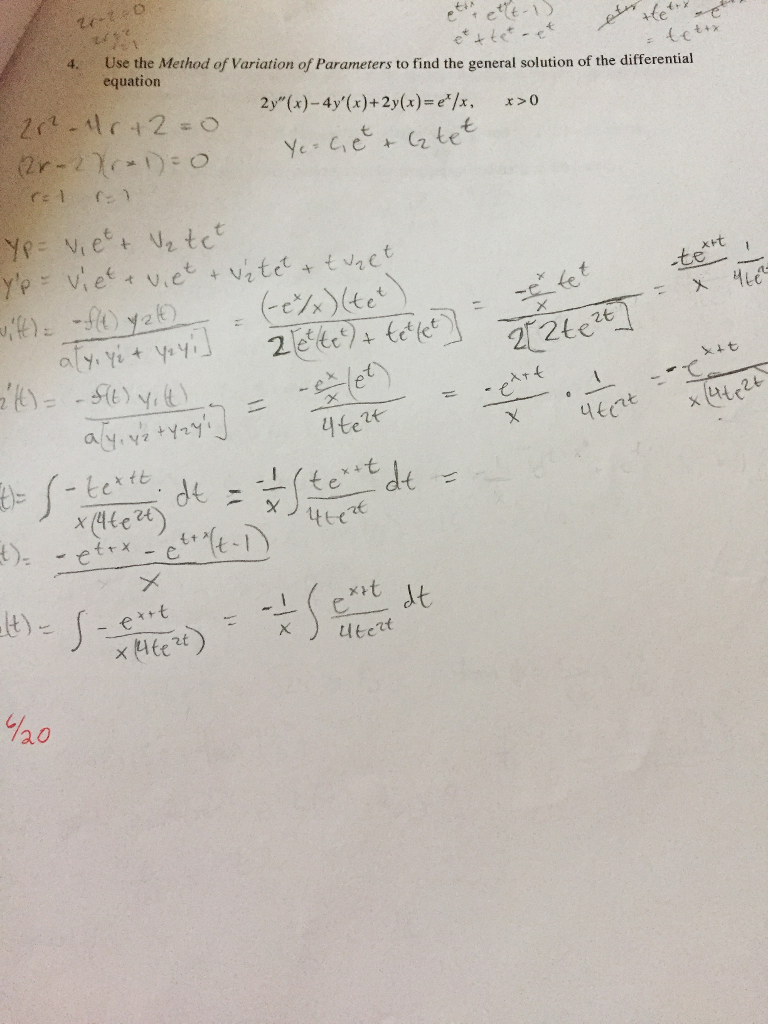 2r-2=0
e^{t+x} + e^{t}(t-1)
e^t + te^t - e^t
= te^{t+x}
4. Use the Method of Variation of Parameters to find the general solution of the differential
equation
2y''(x)-4y'(x)+2y(x)=e^x/x, x>0
2r^2 - 4r + 2 = 0
y_c = c_1e^t + c_2 te^t
(2r-2)(r-1) = 0
r=1 r=1
y_p = v_1e^t + v_2 te^t
y'_p = v_1'e^t + v_1e^t + v_2'te^t + t v_2e^t
v_1'(t) = -f(t) y_2(t) / a[y_1 y_2' + y_2 y_1'] = (-e^x/x)(te^t) / 2[e^t(te^t) + te^t(e^t)] = -e^x/x te^t / 2[2te^{2t}] = -te^{x+t}/x 1/4te
2'(t) = -f(t) y_1(t) / a[y_1 y_2' + y_2 y_1'] = -e^x/x (e^t) / 4te^{2t} = -e^{x+t}/x · 1/4te^{2t} = -e^{x+t} / x(4te^{2t}
t) = ∫ -te^{x+t} / x(4te^{2t}) · dt = -1/x ∫ te^{x+t} / 4te^{2t} dt =
t) = -e^{t+x} - e^{t+x}(t-1) / x
(t) = ∫ -e^{x+t} / x(4te^{2t}) = -1/x ∫ e^{x+t} / 4te^{2t} dt
6/20